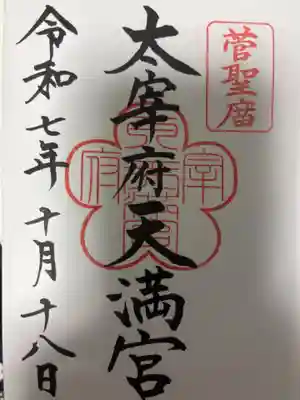 菅聖廟
太宰府天満宮
令和七年十月十八日